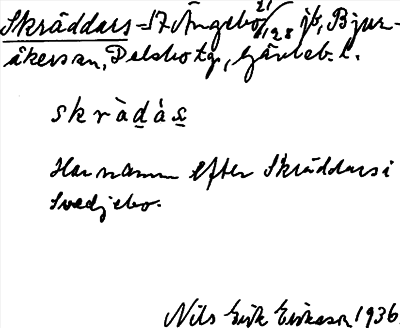 Skräddars = 17 Ängebo 21/128 jb, Bjur-
åkers sn, Delsbo tg., Gävleb. l.
skràdás
Har namn efter Skräddars i
Svedjebo.
Nils Erik Eriksson 1936